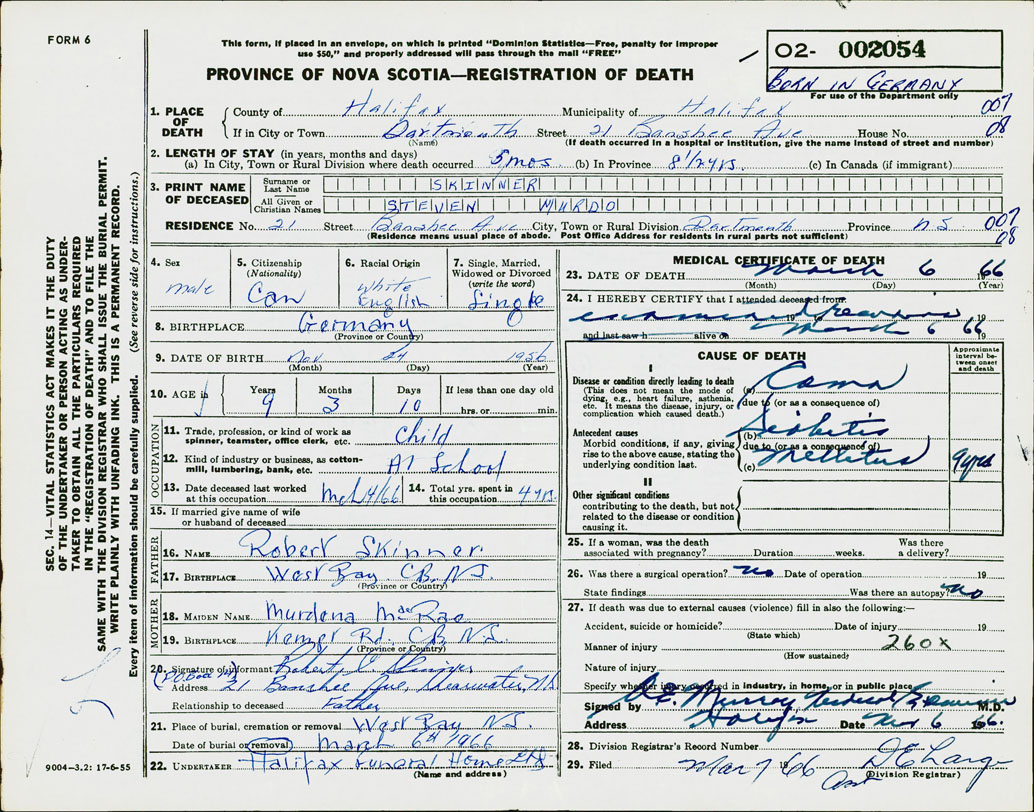 FORM 6
This form, if placed in an envelope, on which is printed “Dominion Statistics—Free, penalty for improper
use $50,” and properly addressed will pass through the mail “FREE”
PROVINCE OF NOVA SCOTIA—REGISTRATION OF DEATH
02- 002054
BORN IN GERMANY
For use of the Department only
SEC. 14—VITAL STATISTICS ACT MAKES IT THE DUTY
OF THE UNDERTAKER OR PERSON ACTING AS UNDER-
TAKER TO OBTAIN ALL THE PARTICULARS REQUIRED
IN THE “REGISTRATION OF DEATH” AND TO FILE THE
SAME WITH THE DIVISION REGISTRAR WHO SHALL ISSUE THE BURIAL PERMIT.
WRITE PLAINLY WITH UNFADING INK. THIS IS A PERMANENT RECORD.
Every item of information should be carefully supplied. (See reverse side for instructions.)
1. PLACE OF DEATH
County of Halifax Municipality of Halifax 007
If in City or Town Dartmouth Street 21 Banshee Ave House No. 08
(Name) (If death occurred in a hospital or institution, give the name instead of street and number)
2. LENGTH OF STAY (in years, months and days)
(a) In City, Town or Rural Division where death occurred 5 mos. (b) In Province 8 1/2 yrs. (c) In Canada (if immigrant)
3. PRINT NAME OF DECEASED
Surname or Last Name SKINNER
All Given or Christian Names STEVEN MURDO
RESIDENCE No. 21 Street Banshee Ave City, Town or Rural Division Dartmouth Province N.S. 007
(Residence means usual place of abode. Post Office Address for residents in rural parts not sufficient) 08
4. Sex
male
5. Citizenship
(Nationality)
Can
6. Racial Origin
White
English
7. Single, Married,
Widowed or Divorced
(write the word)
Single
8. BIRTHPLACE Germany
(Province or Country)
9. DATE OF BIRTH Nov 24 1956
(Month) (Day) (Year)
10. AGE Years Months Days If less than one day old
9 3 10 hrs. or min.
OCCUPATION
11. Trade, profession, or kind of work as
spinner, teamster, office clerk, etc. Child
12. Kind of industry or business, as cotton-
mill, lumbering, bank, etc. At School
13. Date deceased last worked
at this occupation Mch/4/66
14. Total yrs. spent in
this occupation 4 yrs.
15. If married give name of wife
or husband of deceased
FATHER
16. NAME Robert Skinner
17. BIRTHPLACE West Bay C.B. N.S.
(Province or Country)
MOTHER
18. MAIDEN NAME Murdena MacRae
19. BIRTHPLACE Rd. C.B. N.S.
(Province or Country)
20. Signature of informant Robert Skinner
Address 21 Banshee Ave,
Relationship to deceased Father
21. Place of burial, cremation or removal West Bay N.S.
Date of burial or removal March 6th 1966
22. UNDERTAKER Halifax Funeral Home
(Name and address)
9004-3.2: 17-6-55
MEDICAL CERTIFICATE OF DEATH
23. DATE OF DEATH March 6 1966
(Month) (Day) (Year)
24. I HEREBY CERTIFY that I attended deceased from
examined 19 19
and last saw h alive on March 6 66 19
CAUSE OF DEATH
Approximate
interval be-
tween onset
and death
I
Disease or condition directly leading to death
(This does not mean the mode of
dying, e.g., heart failure, asthenia,
etc. It means the disease, injury, or
complication which caused death.)
(a) Coma
due to (or as a consequence of)
Antecedent causes
Morbid conditions, if any, giving
rise to the above cause, stating the
underlying condition last.
(b) Diabetis
due to (or as a consequence of)
(c) Mellitus 9 yrs
II
Other significant conditions
contributing to the death, but not
related to the disease or condition
causing it.
25. If a woman, was the death Was there
associated with pregnancy? Duration weeks. a delivery?
26. Was there a surgical operation? no Date of operation 19
State findings Was there an autopsy? no
27. If death was due to external causes (violence) fill in also the following:—
Accident, suicide or homicide? Date of injury 19
(State which)
Manner of injury 260X
(How sustained)
Nature of injury
Specify whether injury occurred in industry, in home, or in public place
Signed by Murray Medical Examiner M.D.
Address Halifax Date Mar 6 1966.
28. Division Registrar's Record Number
29. Filed Mar 7 1966
(Division Registrar)